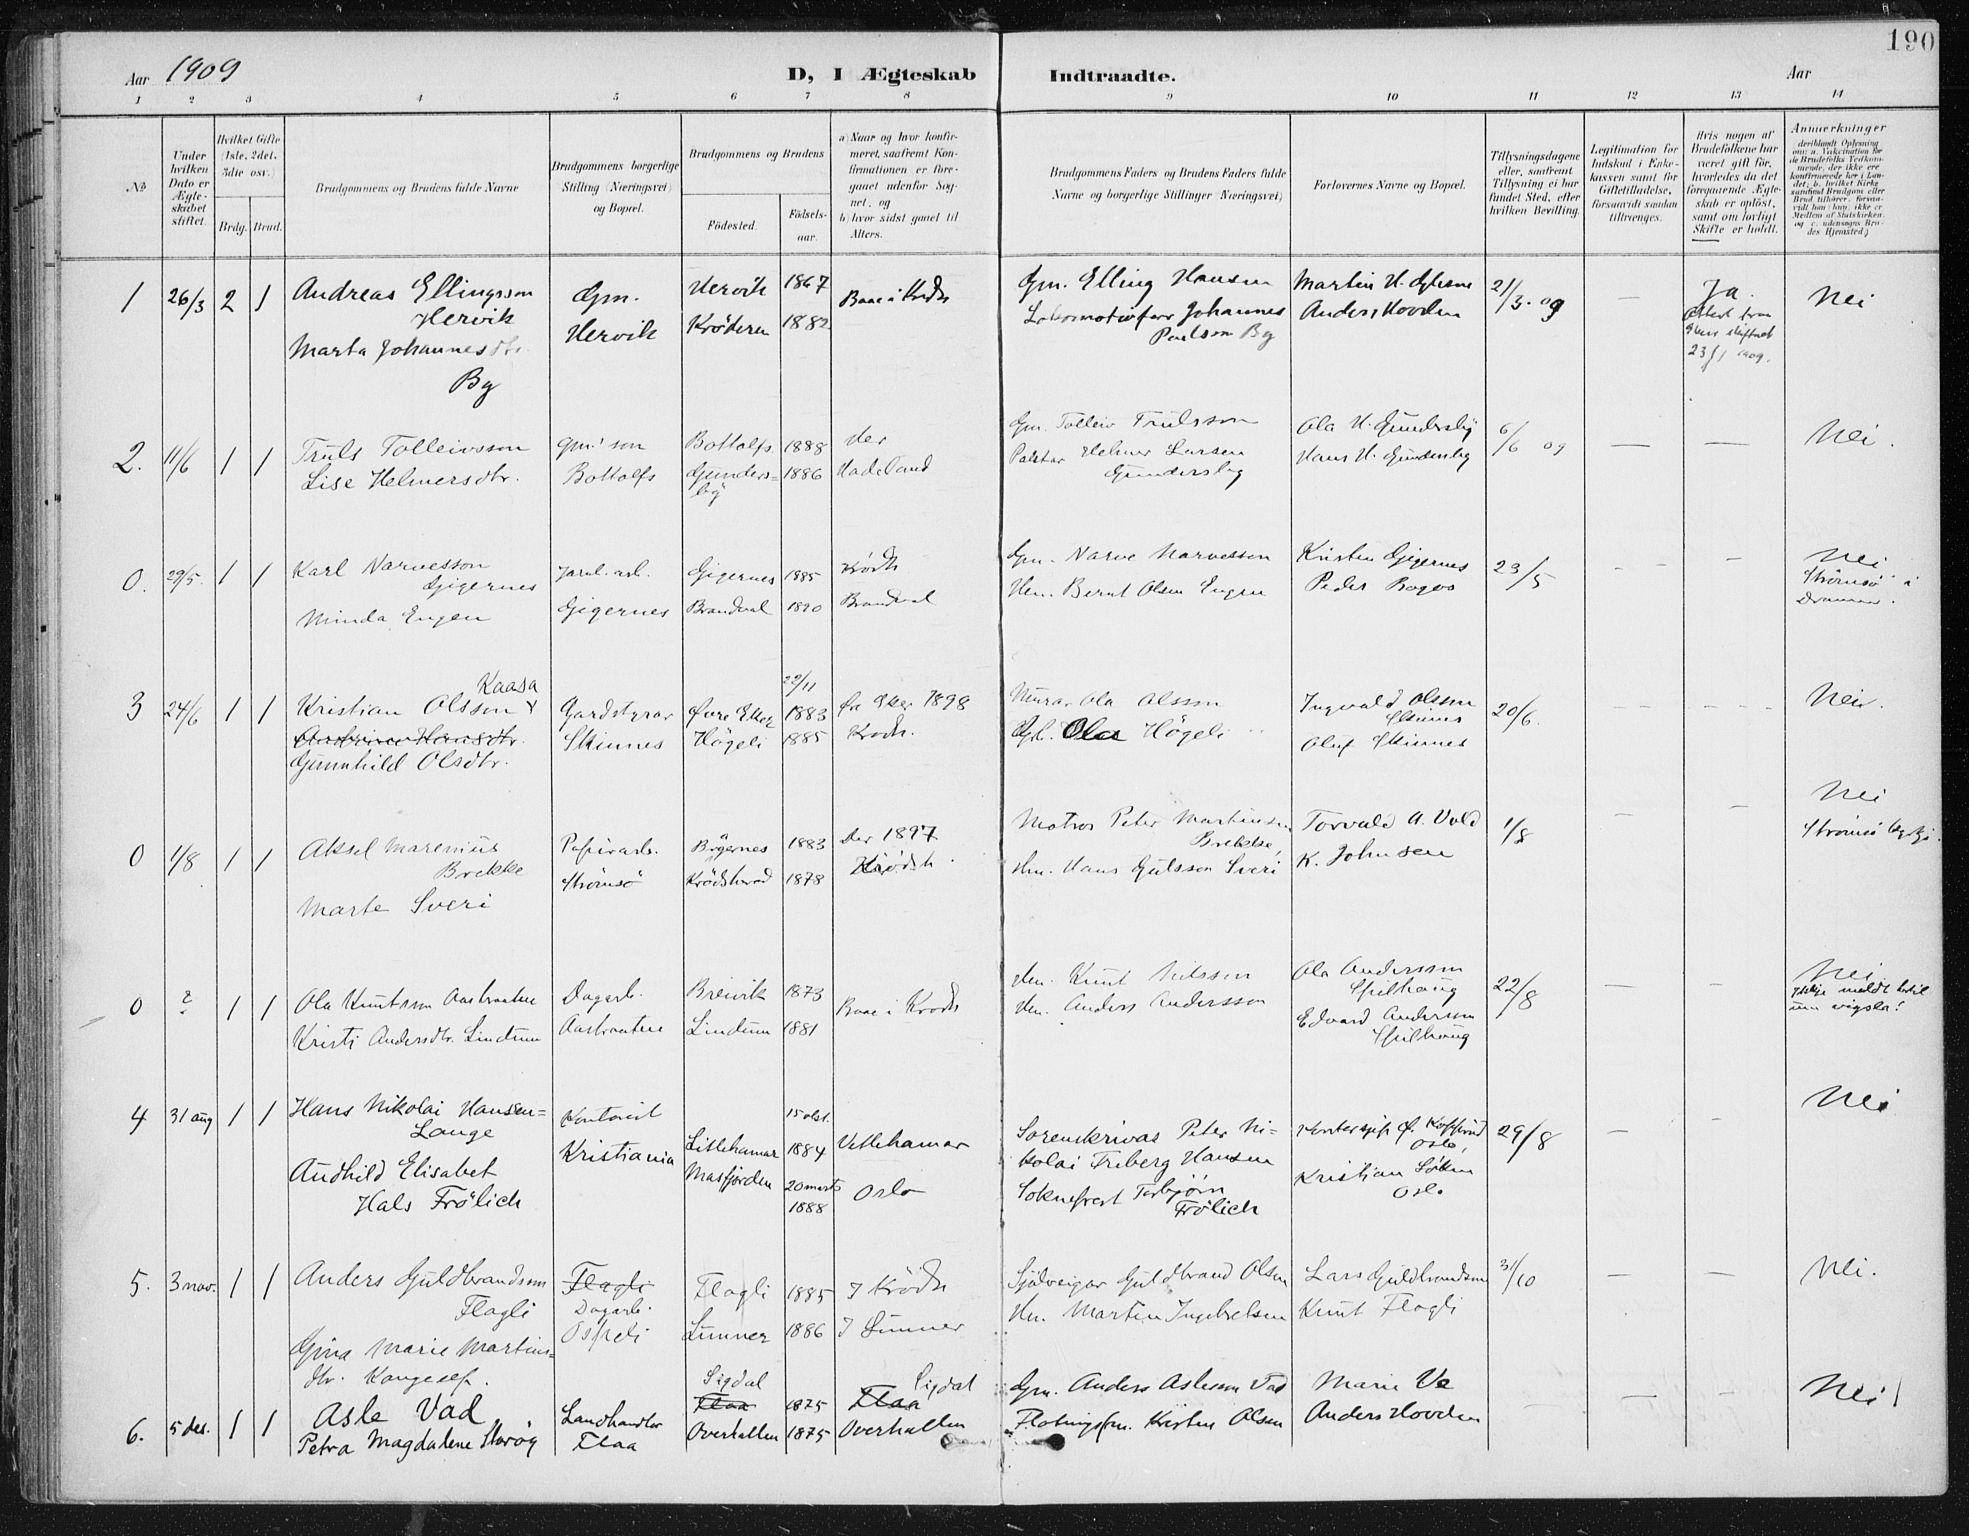 190
Aar 1909
D, I Ægteskab Indtraadte.
Aar
1 2 3 4 5 6 7 8 9 10 11 12 13 14
№
Under hvilken Dato er Ægteskabet stiftet.
Hvilket Gifte (1ste, 2det, 3die osv.)
Brdg. Brud.
Brudgommens og Brudens fulde Navne
Brudgommens borgerlige Stilling (Næringsvei) og Bopæl.
Brudgommens og Brudens
Fødested.
Fødselsaar.
a) Naar og hvor konfirmeret, saafremt Konfirmationen er foregaaet udenfor Sognet, og
b) hvor sidst gaaet til Alters.
Brudgommens Faders og Brudens Faders fulde Navne og borgerlige Stillinger (Næringsvei)
Forlovernes Navne og Bopæl.
Tillysningsdagene eller, saafremt Tillysning ei har fundet Sted, efter hvilken Bevilling.
Legitimation for Indskud i Enkekassen samt for Giftetilladelse, forsaavidt saadan tiltrenges.
Hvis nogen af Brudefolkene har været gift før, hvorledes da det foregaaende Ægteskab er opløst, samt om lovligt Skifte er holdt.
Anmærkninger
1 26/3 2 1 Andreas Ellingsson Hervik
Marta Johannesdtr. By
Gm. Hervik
Hervik 1867
Krøderen 1882
Baae i Krøds
Gm. Elling Hansen
Lokomotivfører Johannes Paulson By
Martin H.
Anders Hovden
21/3. 09
—
Ja.
skiftet
23/1 1909.
Nei
2. 11/6 1 1 Truls Tolleivsson
Lise Helmersdtr.
Gm' son Bottolfs
Bottolfs 1888
Gundersby 1886
Her
Hadeland
Gm. Tolleiv Trulsson
Helmer Larsen Gundersby
Ola H. Gundersby
Hans H. Gundersby
6/6 09
— —
Nei.
0. 29/5. 1 1 Karl Narvesson Gigernes
Minda Engen
Jarnb. arb. Gigernes
Gigernes 1885
Brandval 1890
Krøds
Brandval
Gm. Narve Narvesson
Hm. Bernt Olsen Engen
Kristen Gigernes
Peder Bogos
23/5
Nei
Strømsø i
Drammen.
3 24/6 1 1 Kristian Olsson Kaasa
Gunnhild Olsdtr.
Gardstyrar Skinnes
22/11
Øvre Eker 1883
Høgeli 1885
Øv. Eker 1898
Krøds.
Murar Ola Olsson
Ola Høgeli
Ingvald Olsson Skinnes
Oluf Skinnes
20/6.
Nei.
0 1/8 1 1 Aksel Marenius Brekke
Marte Sveri
Papirarb. Strømsø
Bøgernes 1883
Krødsherad 1878
Der 1897
Krødsh.
Matros Peter Martinsen Brekke,
Hm. Hans Gulsson Sveri
Torvald A. Vold
K. Johnsen
1/8
Nei
Strømsø
0 ? 1 1 Ola Knutson Aasbraaten
Kristi Andersdtr. Lindum
Dagarb. Aasbraaten
Breivik 1873
Lindum 1881
Baae i Krøds
Hm. Knut Nilsson
Hm. Anders Andersson
Ola Andersson Spilhaug
Edvard Anderson Spilhaug
22/8
Nei
Ikkje meldt hertil
um vigsla!
4 31 aug 1 1 Hans Nikolai Hansen=
Lange
Audhild Elisabet
Hals Frölich
Kontorist Kristiania
15 okt.
Litlehamar 1884
Masfjorden 20 marts 1888
Vetlehamar
Oslo
Sorenskrivar Peter Ni=
kolai Friberg Hansen
Sokneprest Torbjørn
Frölich
Oslo
Kristian
Oslo
29/8
—
Nei
5. 3 nov. 1 1 Anders Guldbrandson
Flagli
Gina Marie Martins=
dtr. Kongeself.
Flagli
Dagarb. Ospeli
Flagli 1885
Lunner 1886
I Krøds
I Lunner
Sjølveigar Guldbrand Olsen
Hm. Martin Ingebretsen
Lars Guldbrandson
Knut Flagli
31/10
— —
Nei.
6. 5 des. 1 1 Asle Vad
Petra Magdalene Storøy
Landhandlar Flaa
Sigdal
Flaa 1875
Overhallen 1875
Sigdal
Flaa
Overhallen
Gm. Anders Asleson Vad
Flotningsfm. Kristen Olsen
Marie Ve
Anders Hovden
—
Nei